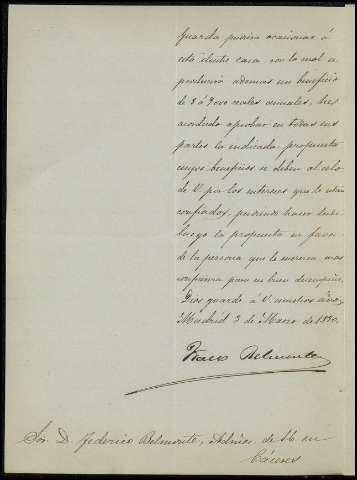 guarda pudiera ocasionar á
esta ilustre casa con lo cual se
produciria ademas un beneficio
de 8 á 9000 reales anuales, he
acordado aprobar en todas sus
partes la indicada propuesta
cuyos beneficios se deben al celo
de V. por los intereses que le estan
confiados, pudiendo hacer desde
luego la propuesta en favor
de la persona que le merezca mas
confianza para su buen desempeño.
Dios guarde á V. muchos años.
Madrid 3 de Marzo de 1890.
Belmonte
Sor. D. Federico Belmonte, Admor. de M. en
Cáceres